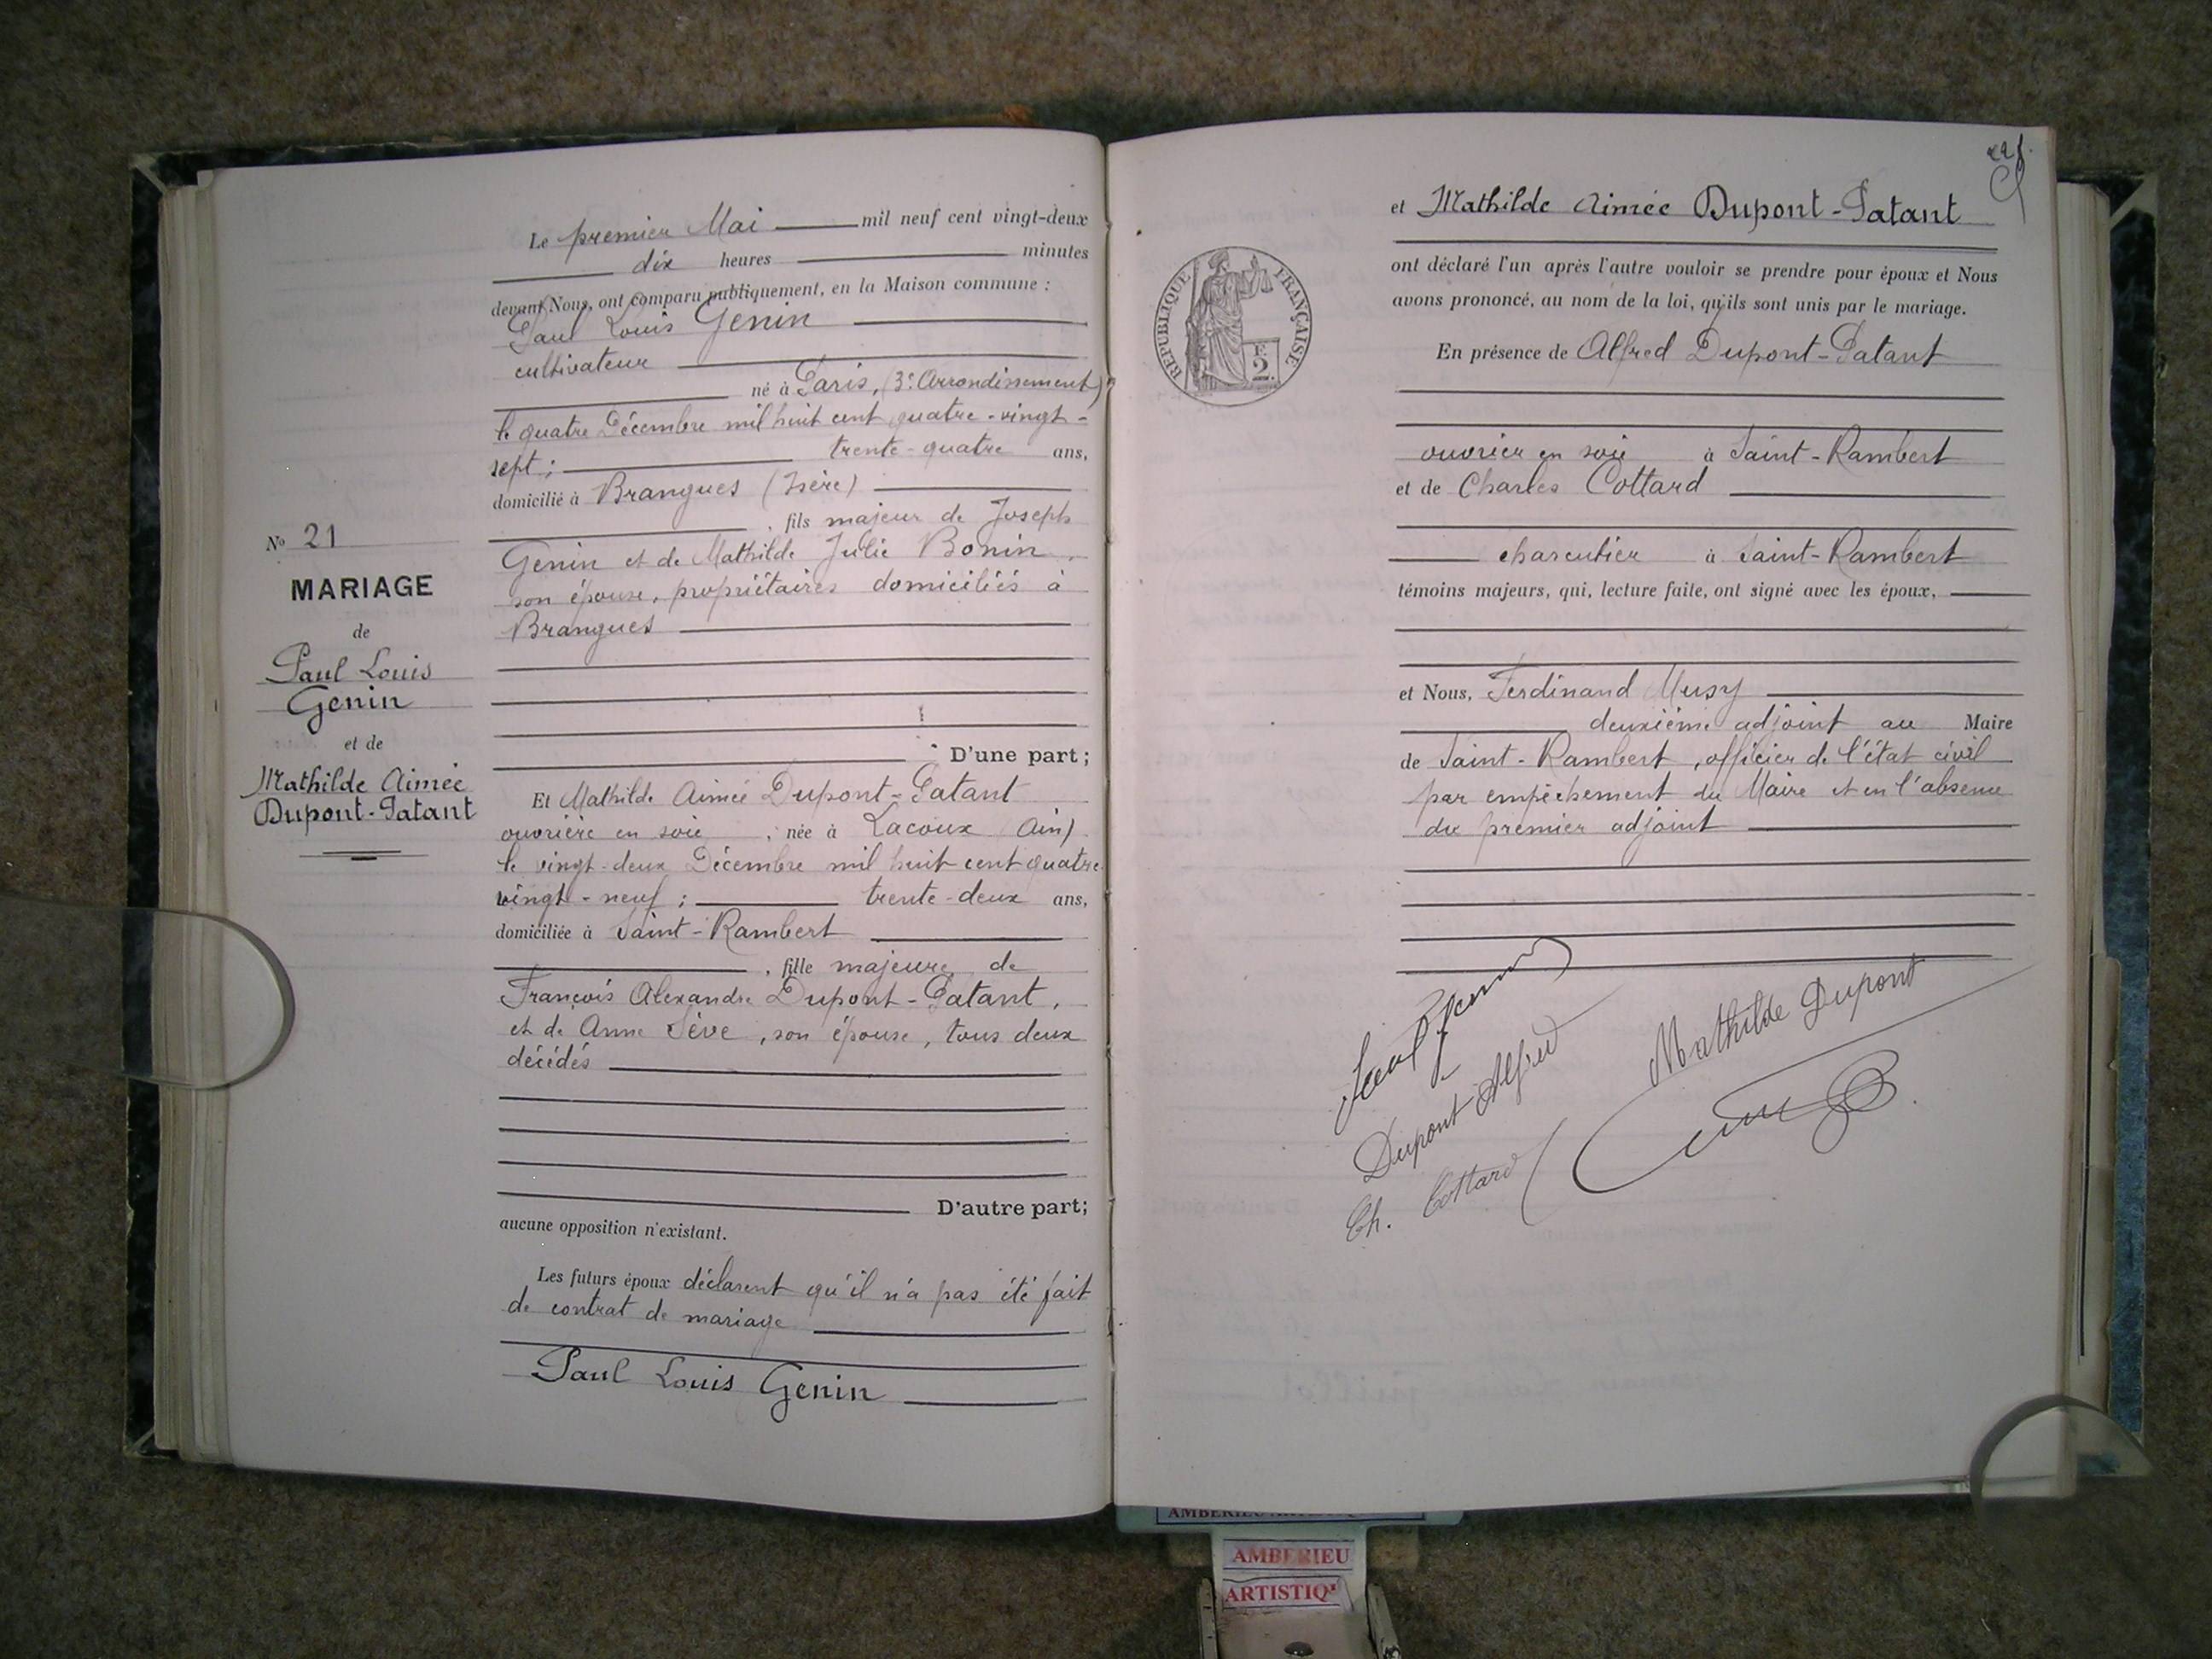 Le premier Mai mil neuf cent vingt-deux
dix heures minutes
devant Nous, ont comparu publiquement, en la Maison commune :
Paul Louis Genin
cultivateur
né à Paris, (3e Arrondissement)
le quatre Décembre mil huit cent quatre-vingt-
sept ; trente-quatre ans,
domicilié à Brangues (Isère)
, fils majeur de Joseph
Genin et de Mathilde Julie Bonin,
son épouse, propriétaires domiciliés à
Brangues
D'une part ;
Et Mathilde Aimée Dupont-Patant
ouvrière en soie , née à Lacoux (Ain)
le vingt-deux Décembre mil huit cent quatre-
vingt-neuf ; trente-deux ans,
domiciliée à Saint-Rambert
, fille majeure de
François Alexandre Dupont-Patant,
et de Anne Sève, son épouse, tous deux
décédés
D'autre part ;
aucune opposition n'existant.
Les futurs époux déclarent qu'il n'a pas été fait
de contrat de mariage
Paul Louis Genin
No 21
MARIAGE
de
Paul Louis
Genin
et de
Mathilde Aimée
Dupont-Patant
et Mathilde Aimée Dupont-Patant
ont déclaré l'un après l'autre vouloir se prendre pour époux et Nous
avons prononcé, au nom de la loi, qu'ils sont unis par le mariage.
En présence de Alfred Dupont-Patant
ouvrier en soie à Saint-Rambert
et de Charles Cottard
charcutier à Saint-Rambert
témoins majeurs, qui, lecture faite, ont signé avec les époux,
et Nous, Ferdinand Musy
deuxième adjoint au Maire
de Saint-Rambert, officier de l'état civil
par empêchement du Maire et en l'absence
du premier adjoint
RÉPUBLIQUE FRANÇAISE
F.
2.
Mathilde Dupont
Dupont Alfred
Ch. Cottard
AMBERIEU
ARTISTIQ